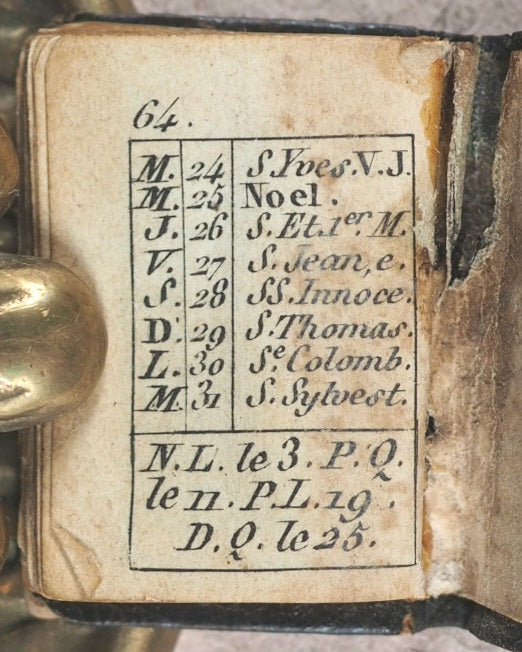 64.
M. 24 S. Yves. V. J.
M. 25 Noel.
J. 26 S. Et. 1er. M.
V. 27 S. Jean, e.
S. 28 SS. Innoce.
D. 29 S. Thomas.
L. 30 Se. Colomb.
M. 31 S. Sylvest.
N. L. le 3. P. Q.
le 11. P. L. 19.
D. Q. le 25.